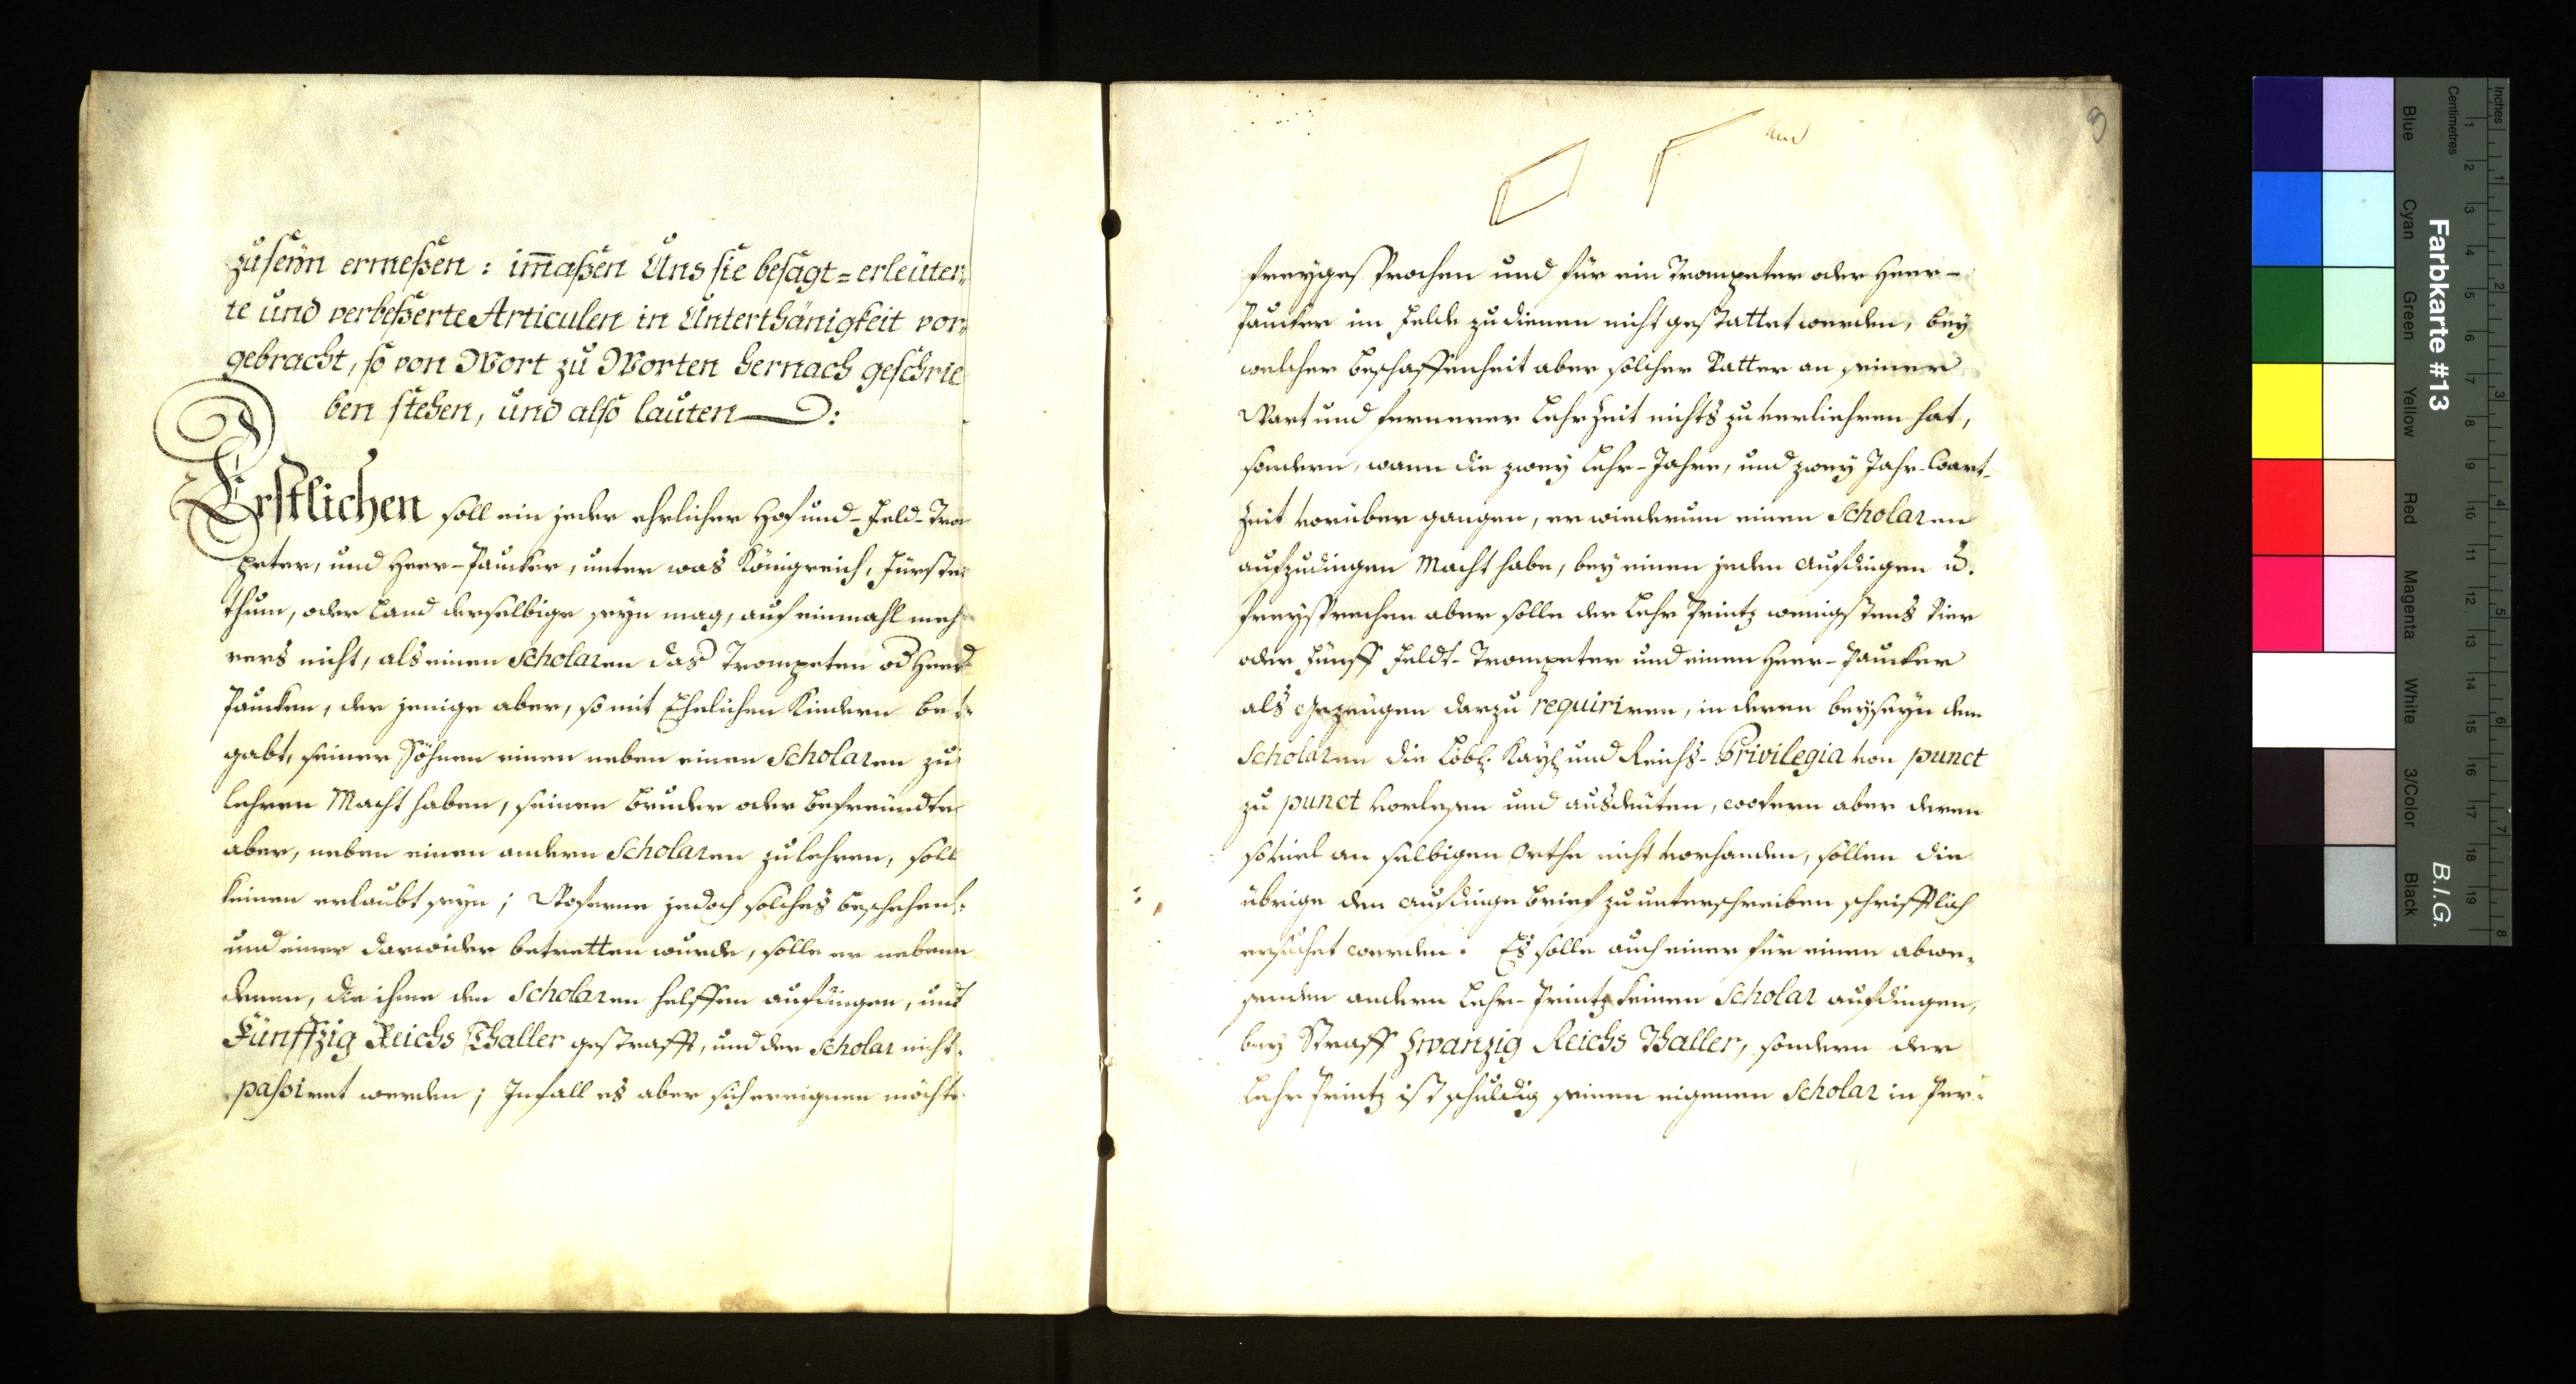 zuseÿn ermeßen: im̄aßen Uns sie besagt=erleüter¬
te und verbeßerte Articulen in Unterthänigkeit vor¬
gebracht, so von Wort zu Worten hernach geschrie
ben stehen, und also lauten:
Erstlichen soll ein jeder ehrlicher Hof und-Feld-Trom
peter, und Heer-Paucker, unter was Königreich, Fürsten
thum, oder Land derselbige seyn mag, auf einmahl meh
rers nicht, als einen Scholaren das Trompeten od Heer
Paucken, der jenige aber, so mit Ehelichen Kindern be¬
gabt, seiner Söhnen einen neben einen Scholaren zu
lehren Macht haben, seinen Bruder oder Befreundte
aber, neben einen andern Scholaren zu lehren, soll
keinen erlaubt seyn; Woferne jedoch solches beschehen,
und einer darwider betretten wurde, solle er neben
denen, die ihme den Scholaren helffen aufdingen, und
Fünffzig Reichs Thaller gestrafft, und der Scholar nicht
passiret werden; Infall es aber sich ereignen möchte
3
freygesprochen und für ein Trompeter oder Heer-
Paucker im Felde zu dienen nicht gestattet werden, bey
welcher Beschaffenheit aber solcher Vatter an seiner
Wart und fernerer Lehrzeit nichts zu verliehren hat,
sondern, wann die zwey Lehr-Jahre, und zwey Jahr-Wart-
Zeit vorüber gangen, er wiederum einen Scholaren
aufzudingen Macht habe, bey einen jeden Aufdingen u.
freysprechen aber solle der Lehr Printz wenigstens Vier
oder Fünff Feldt-Trompeter und einen Heer-Paucker
als Gezeugen darzu requiriren, in deren beyseyn dem
Scholaren die Löbl. Kayl. und Reichs-Privilegia von punct
zu punct vorlesen und ausdeuten, wofern aber deren
soviel an selbigen Orthe nicht vorhanden, sollen die
übrige den Aufdinge Brief zu unterschreiben schrifftlich
ersuchet werden. Es solle auch einer für einen abwe¬
senden andern Lehr-Printz keinen Scholar aufdingen,
bey Straff Zwanzig Reichs Thaller, sondern der
Lehr Printz ist schuldig seinen eigenen Scholar in Per¬
Farbkarte #13
B.I.G.
Blue Cyan Green Yellow Red Magenta White 3/Color Black
Centimetres 1 2 3 4 5 6 7 8 9 10 11 12 13 14 15 16 17 18 19
Inches 1 2 3 4 5 6 7 8